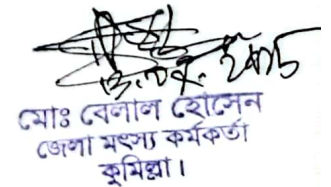 মোঃ বেলাল হোসেন
জেলা মৎস্য কর্মকর্তা
কুমিল্লা।